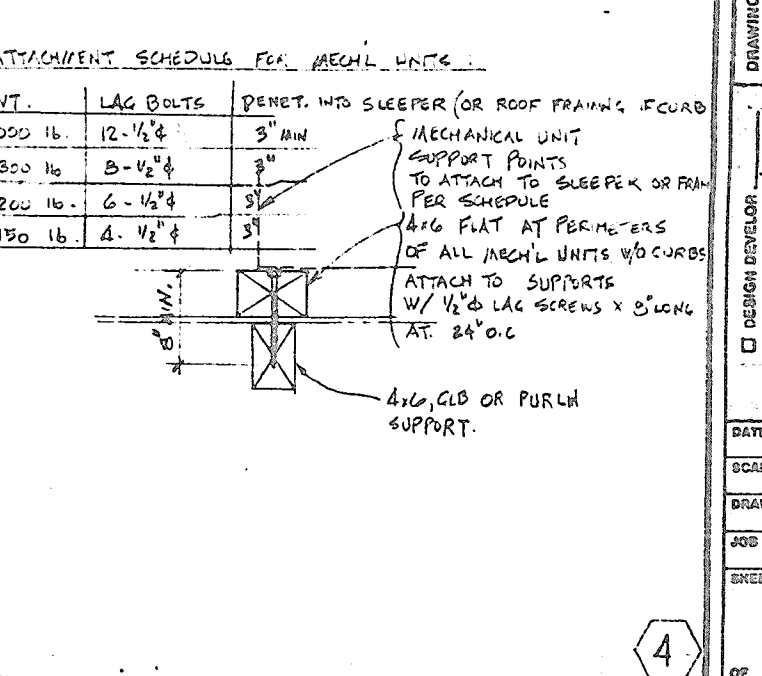 ATTACHMENT SCHEDULE FOR MECH'L UNITS :
WT. LAG BOLTS PENET. INTO SLEEPER (OR ROOF FRAMING IF CURB
000 lb. 12-1/2"ɸ 3" MIN
300 lb 8-1/2"ɸ 3"
200 lb. 6-1/2"ɸ 3"
150 lb. 4-1/2"ɸ 3"
MECHANICAL UNIT
SUPPORT POINTS
TO ATTACH TO SLEEPER OR FRAM
PER SCHEDULE
4x6 FLAT AT PERIMETERS
OF ALL MECH'L UNITS W/O CURBS
ATTACH TO SUPPORTS
W/ 1/2"ɸ LAG SCREWS x 8" LONG
AT. 24" O.C
8" MIN.
4x6, GLB OR PURLIN
SUPPORT.
4
DRAWING
☐ DESIGN DEVELOP
DATE
SCAL
DRAW
JOB
SHEE
OF